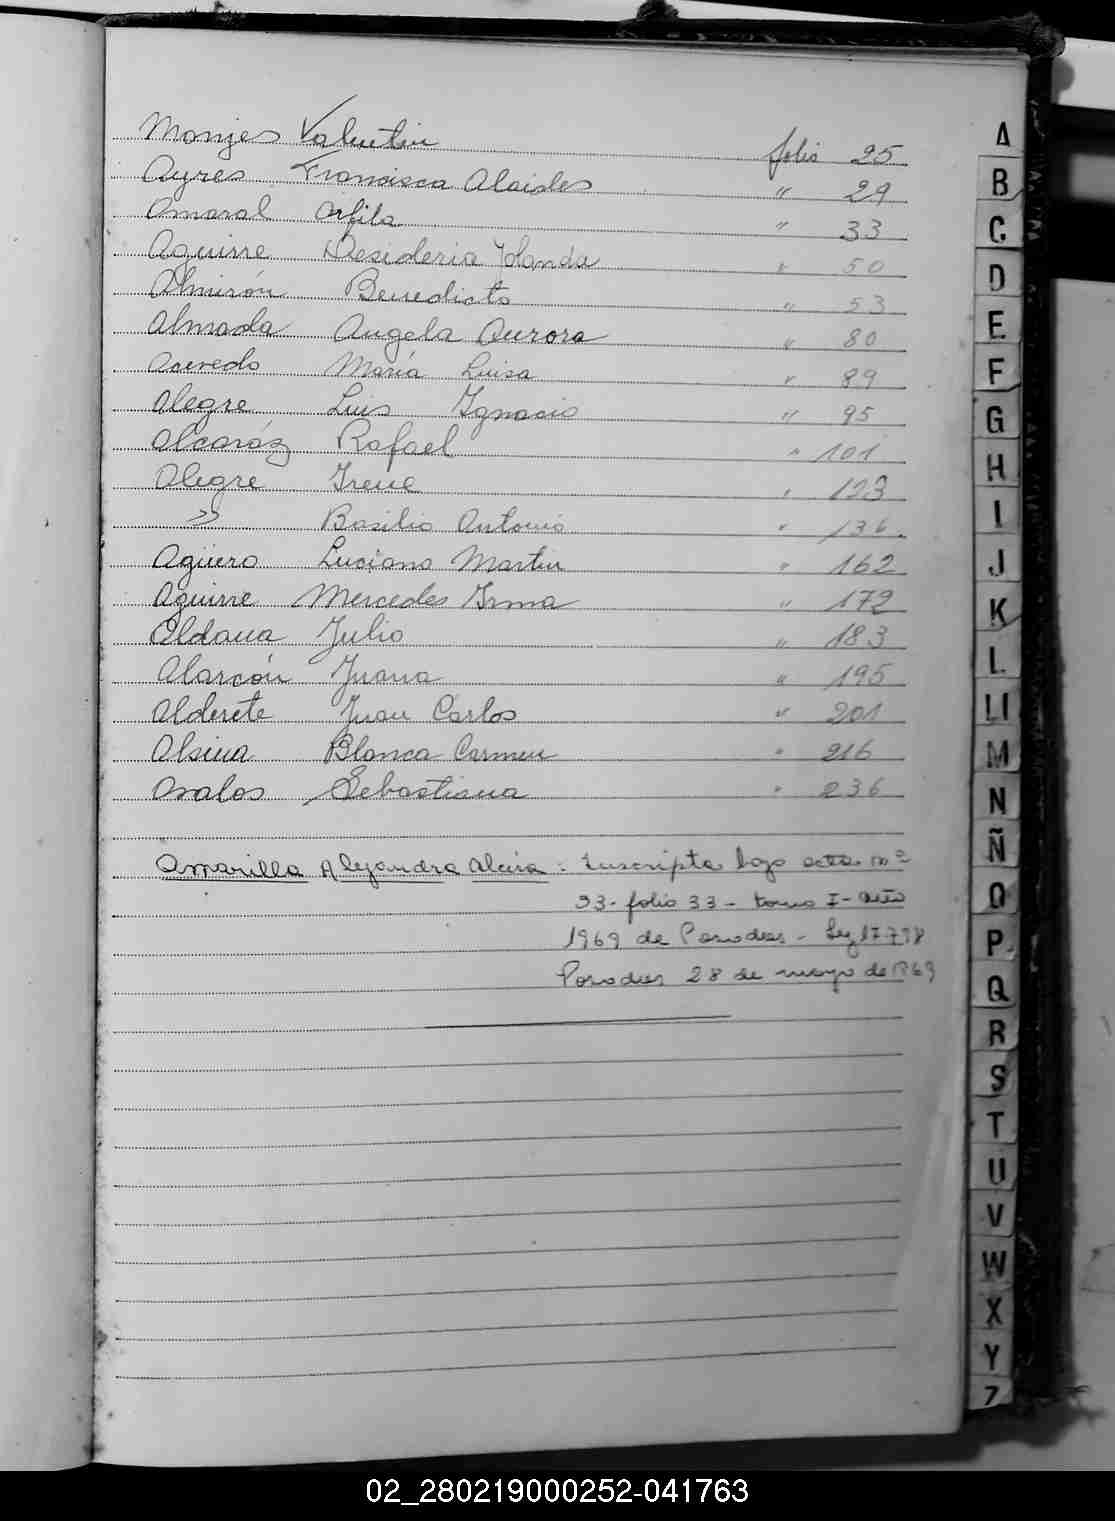 Monjes Valentin folio 25
Ayres Francisca Alcides " 29
Amaral Orfila " 33
Aguirre Desideria Yolanda " 50
Almirón Benedicto " 53
Almada Angela Aurora " 80
Acevedo María Luisa " 89
Alegre Luis Ignacio " 95
Alcaráz Rafael " 101
Alegre Irene " 123
" Basilio Antonio " 136
Agüero Luciano Martin " 162
Aguirre Mercedes Irma " 172
Aldana Julio " 183
Alarcón Juana " 195
Alderete Juan Carlos " 201
Alsina Blanca Carmen " 216
Avalos Sebastiana " 236
Amarilla Alejandra Alcira : Inscripta bajo acta nº
33- folio 33 - tomo I - año
1969 de Posadas - Ley 17.718
Posadas 28 de mayo de 1969
A
B
C
D
E
F
G
H
I
J
K
L
Ll
M
N
Ñ
O
P
Q
R
S
T
U
V
W
X
Y
Z
02_280219000252-041763